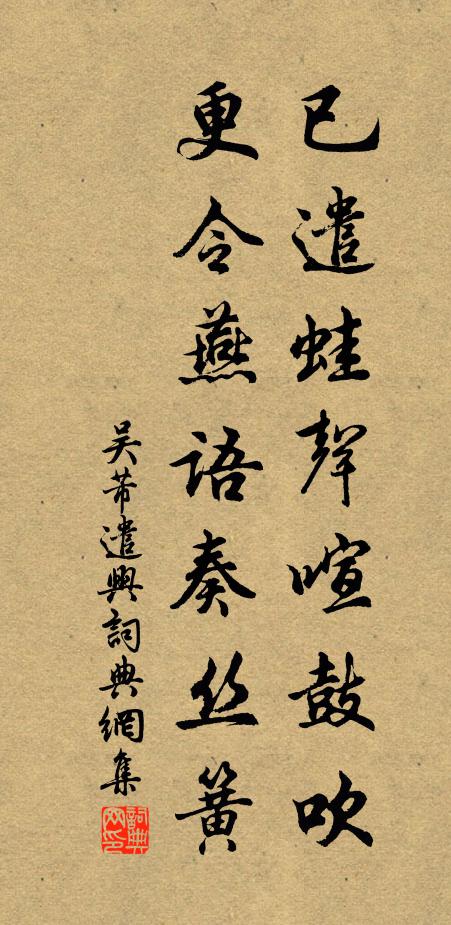 已遣蛙聲喧鼓吹
更令燕語奏丝簧
吴芾遣興詞典網集
詞典网印